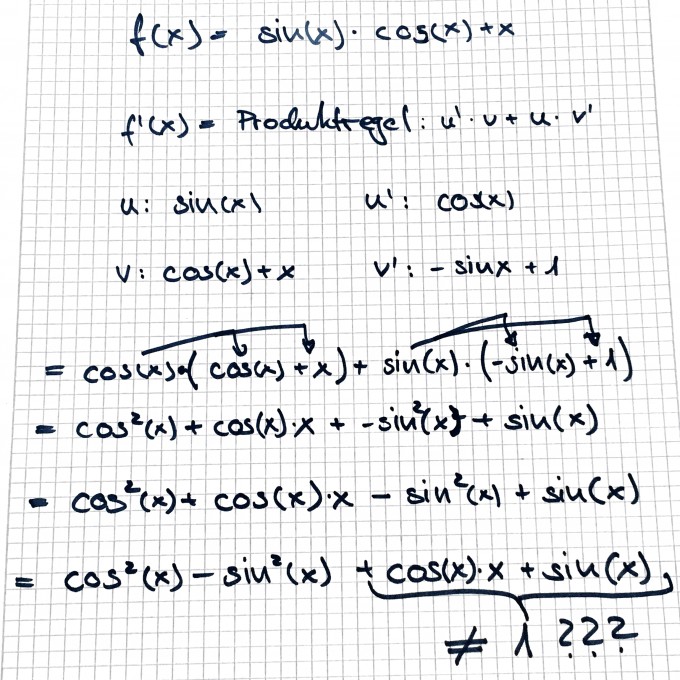 f(x) = sin(x) · cos(x) + x
f'(x) = Produktregel: u' · v + u · v'
u: sin(x) u': cos(x)
v: cos(x) + x v': - sinx + 1
= cos(x) · (cos(x) + x) + sin(x) · (-sin(x) + 1)
= cos²(x) + cos(x) · x + -sin²(x) + sin(x)
= cos²(x) + cos(x) · x - sin²(x) + sin(x)
= cos²(x) - sin²(x) + cos(x) · x + sin(x)
≠ 1 ???